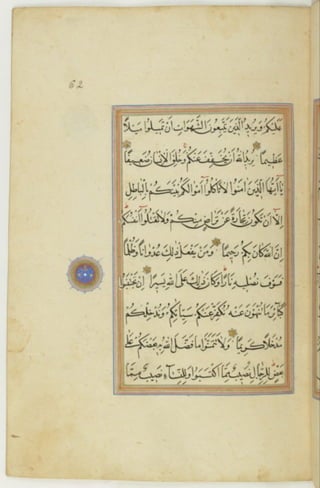 62
عَلَيْكُمْ وَيُرِيدُ الَّذِينَ يَتَّبِعُونَ الشَّهَوَاتِ أَنْ تَمِيلُوا مَيْلًا
عَظِيمًا يُرِيدُ اللَّهُ أَنْ يُخَفِّفَ عَنْكُمْ وَخُلِقَ الْإِنْسَانُ ضَعِيفًا
يَا أَيُّهَا الَّذِينَ آمَنُوا لَا تَأْكُلُوا أَمْوَالَكُمْ بَيْنَكُمْ بِالْبَاطِلِ
إِلَّا أَنْ تَكُونَ تِجَارَةً عَنْ تَرَاضٍ مِنْكُمْ وَلَا تَقْتُلُوا أَنْفُسَكُمْ
إِنَّ اللَّهَ كَانَ بِكُمْ رَحِيمًا وَمَنْ يَفْعَلْ ذَلِكَ عُدْوَانًا وَظُلْمًا
فَسَوْفَ نُصْلِيهِ نَارًا وَكَانَ ذَلِكَ عَلَى اللَّهِ يَسِيرًا إِنْ تَجْتَنِبُوا
كَبَائِرَ مَا تُنْهَوْنَ عَنْهُ نُكَفِّرْ عَنْكُمْ سَيِّئَاتِكُمْ وَنُدْخِلْكُمْ
مُدْخَلًا كَرِيمًا وَلَا تَتَمَنَّوْا مَا فَضَّلَ اللَّهُ بِهِ بَعْضَكُمْ عَلَى
بَعْضٍ لِلرِّجَالِ نَصِيبٌ مِمَّا اكْتَسَبُوا وَلِلنِّسَاءِ نَصِيبٌ مِمَّا